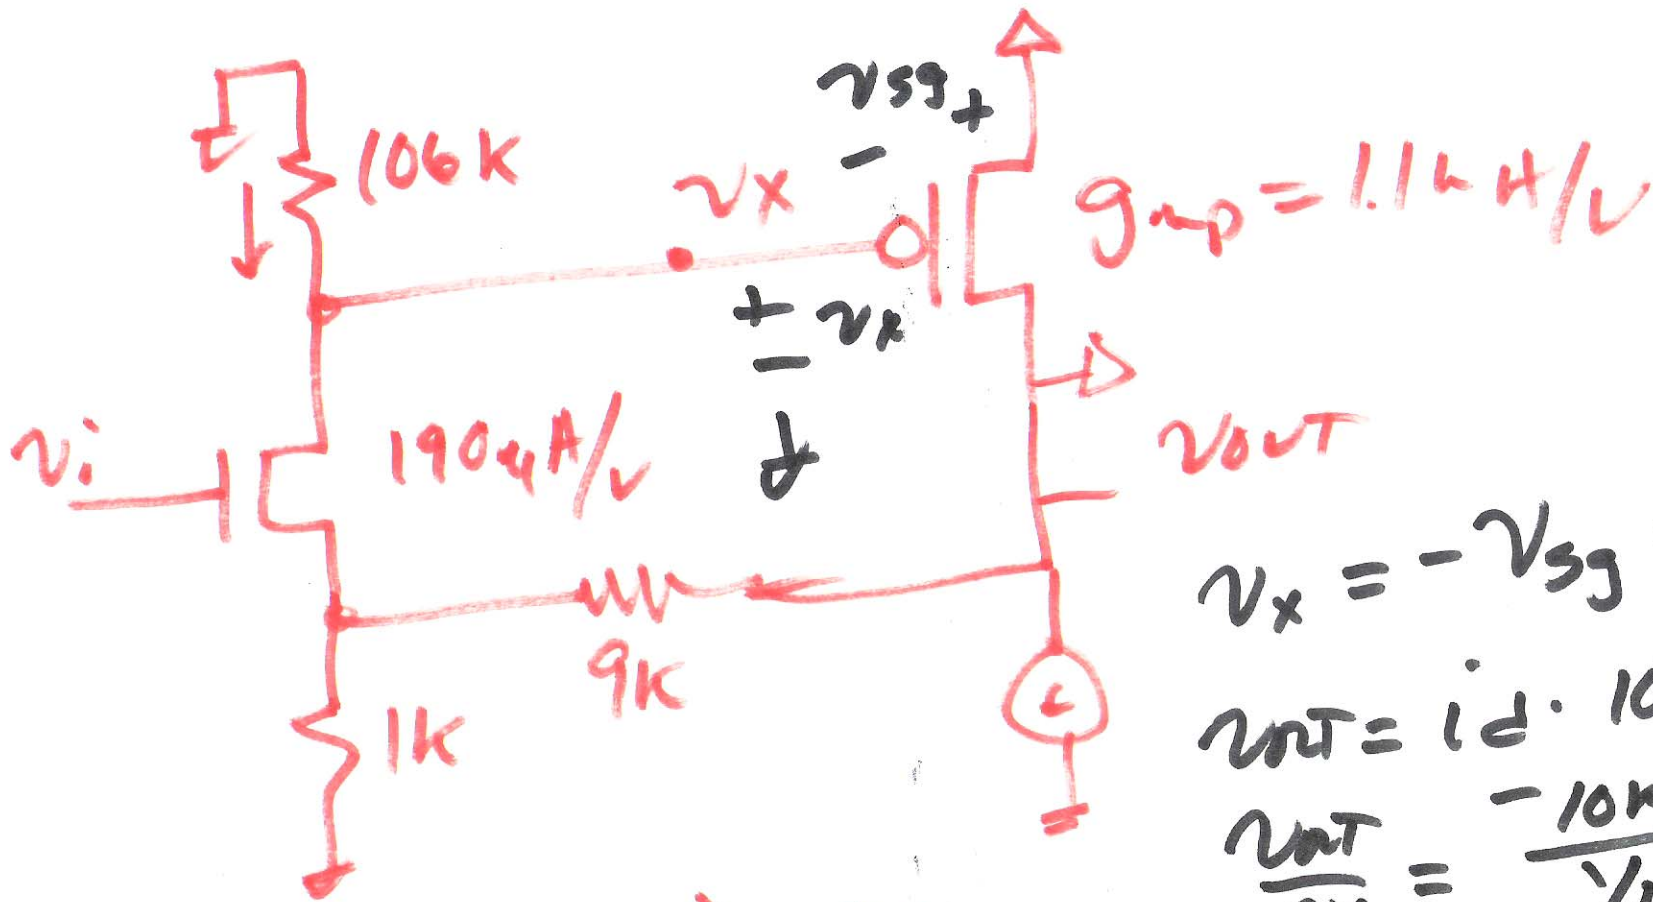 vsg +
-
106K
vx
gmp = 1.1mA/V
+ vx
-
vi
190μA/V
vOUT
vx = - vsg
9K
1K
vOUT = id · 10
vOUT
=
- 10K